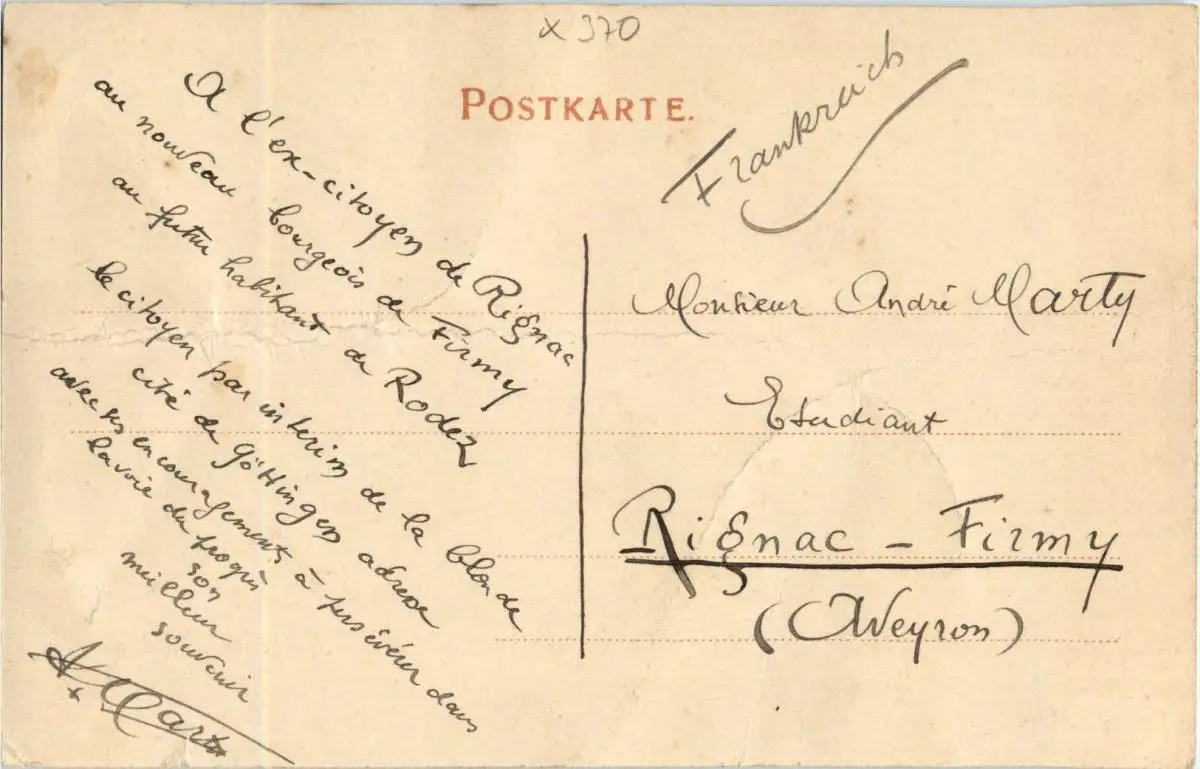 x 370
POSTKARTE.
Frankreich
A l'ex-citoyen de Rignac
au nouveau bourgeois de Firmy
au futur habitant de Rodez
le citoyen par interim de la blonde
cité de Göttingen adresse
avec ses encouragements à persévérer dans
la voie du progrès
son
meilleur
souvenir
A. Marty
Monsieur André Marty
Etudiant
Rignac - Firmy
(Aveyron)